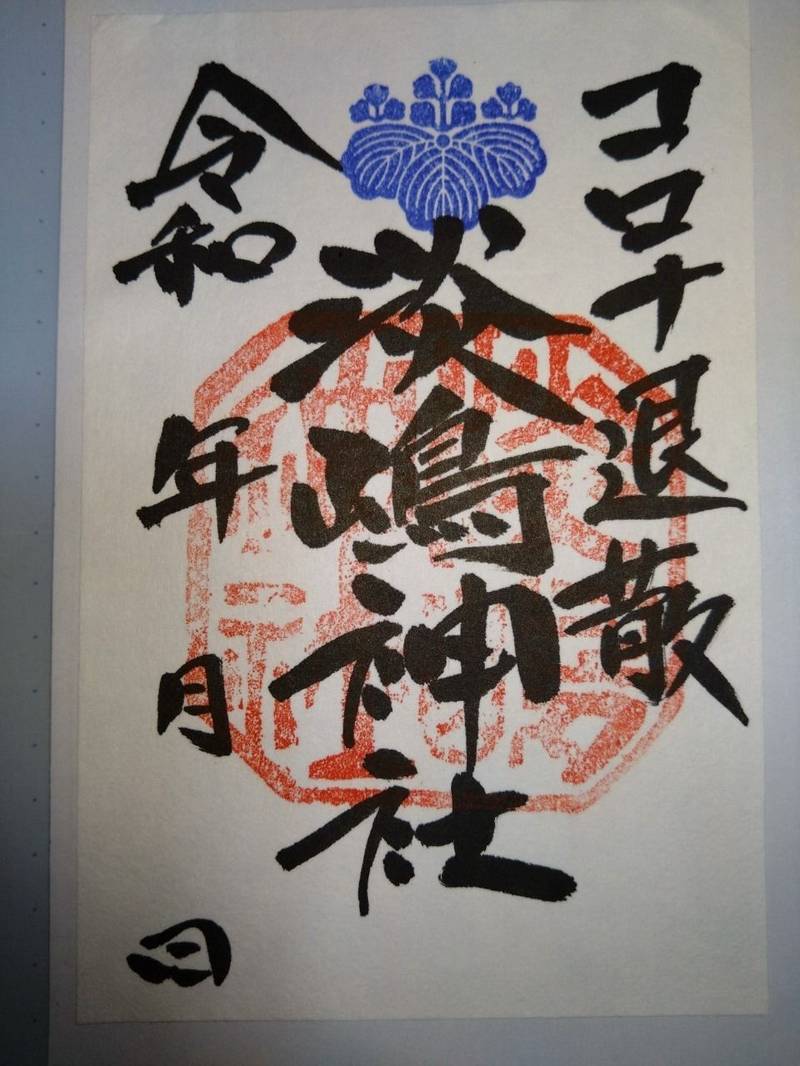 コロナ退散
淡嶋神社
令和 年 月 日